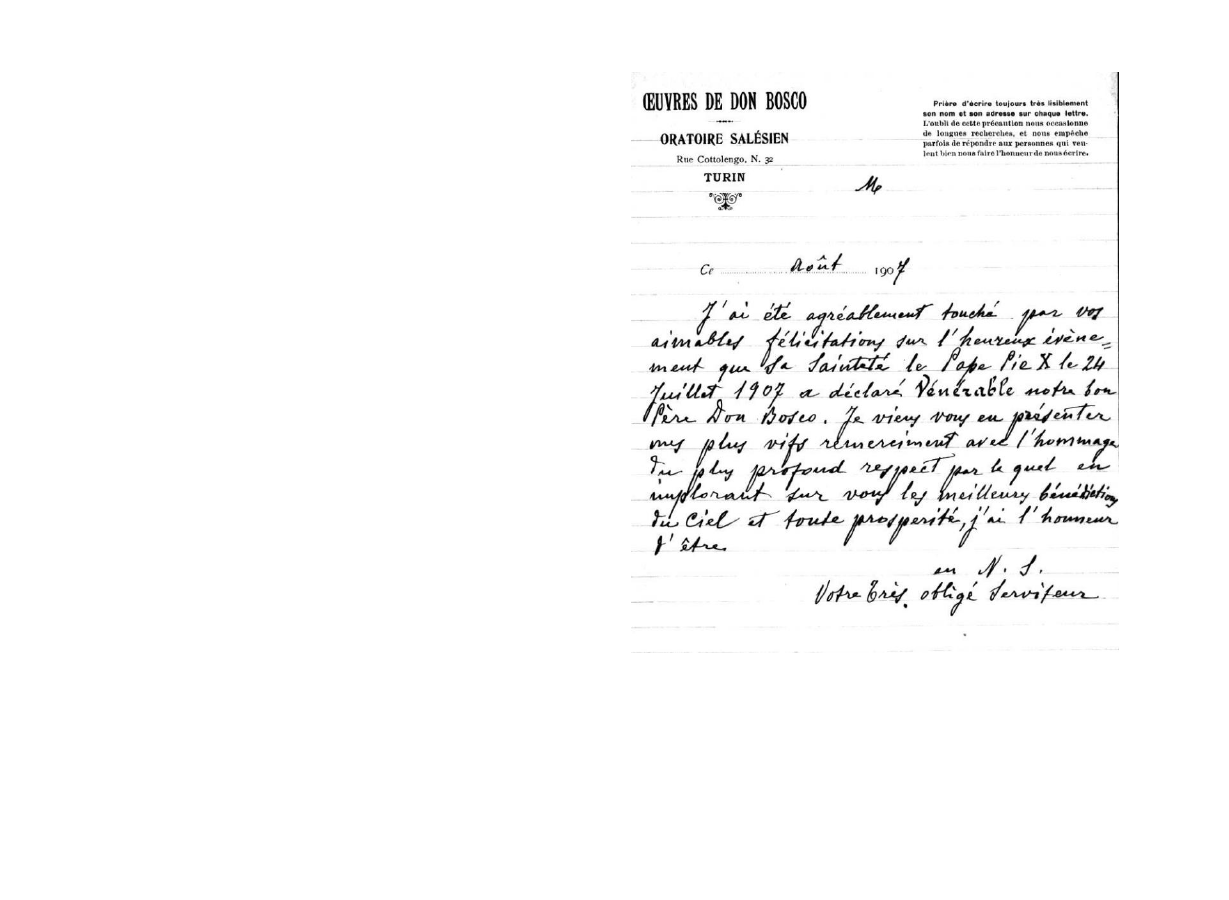 ŒUVRES DE DON BOSCO
ORATOIRE SALÉSIEN
Rue Cottolengo, N. 32
TURIN
Prière d'écrire toujours très lisiblement
son nom et son adresse sur chaque lettre.
L'oubli de cette précaution nous occasionne
de longues recherches, et nous empêche
parfois de répondre aux personnes qui veu-
lent bien nous faire l'honneur de nous écrire.
Ce Août 1907
J'ai été agréablement touché par vos
aimables félicitations sur l'heureux évène=
ment que Sa Sainteté le Pape Pie X le 24
Juillet 1907 a déclaré Vénérable notre bon
Père Don Bosco. Je viens vous en présenter
mes plus vifs remerciment avec l'hommage
du plus profond respect par le quel en
implorant sur vous les meilleurs bénédictions
du Ciel et toute prosperité, j'ai l'honneur
d'être
en N. S.
Votre très obligé Serviteur